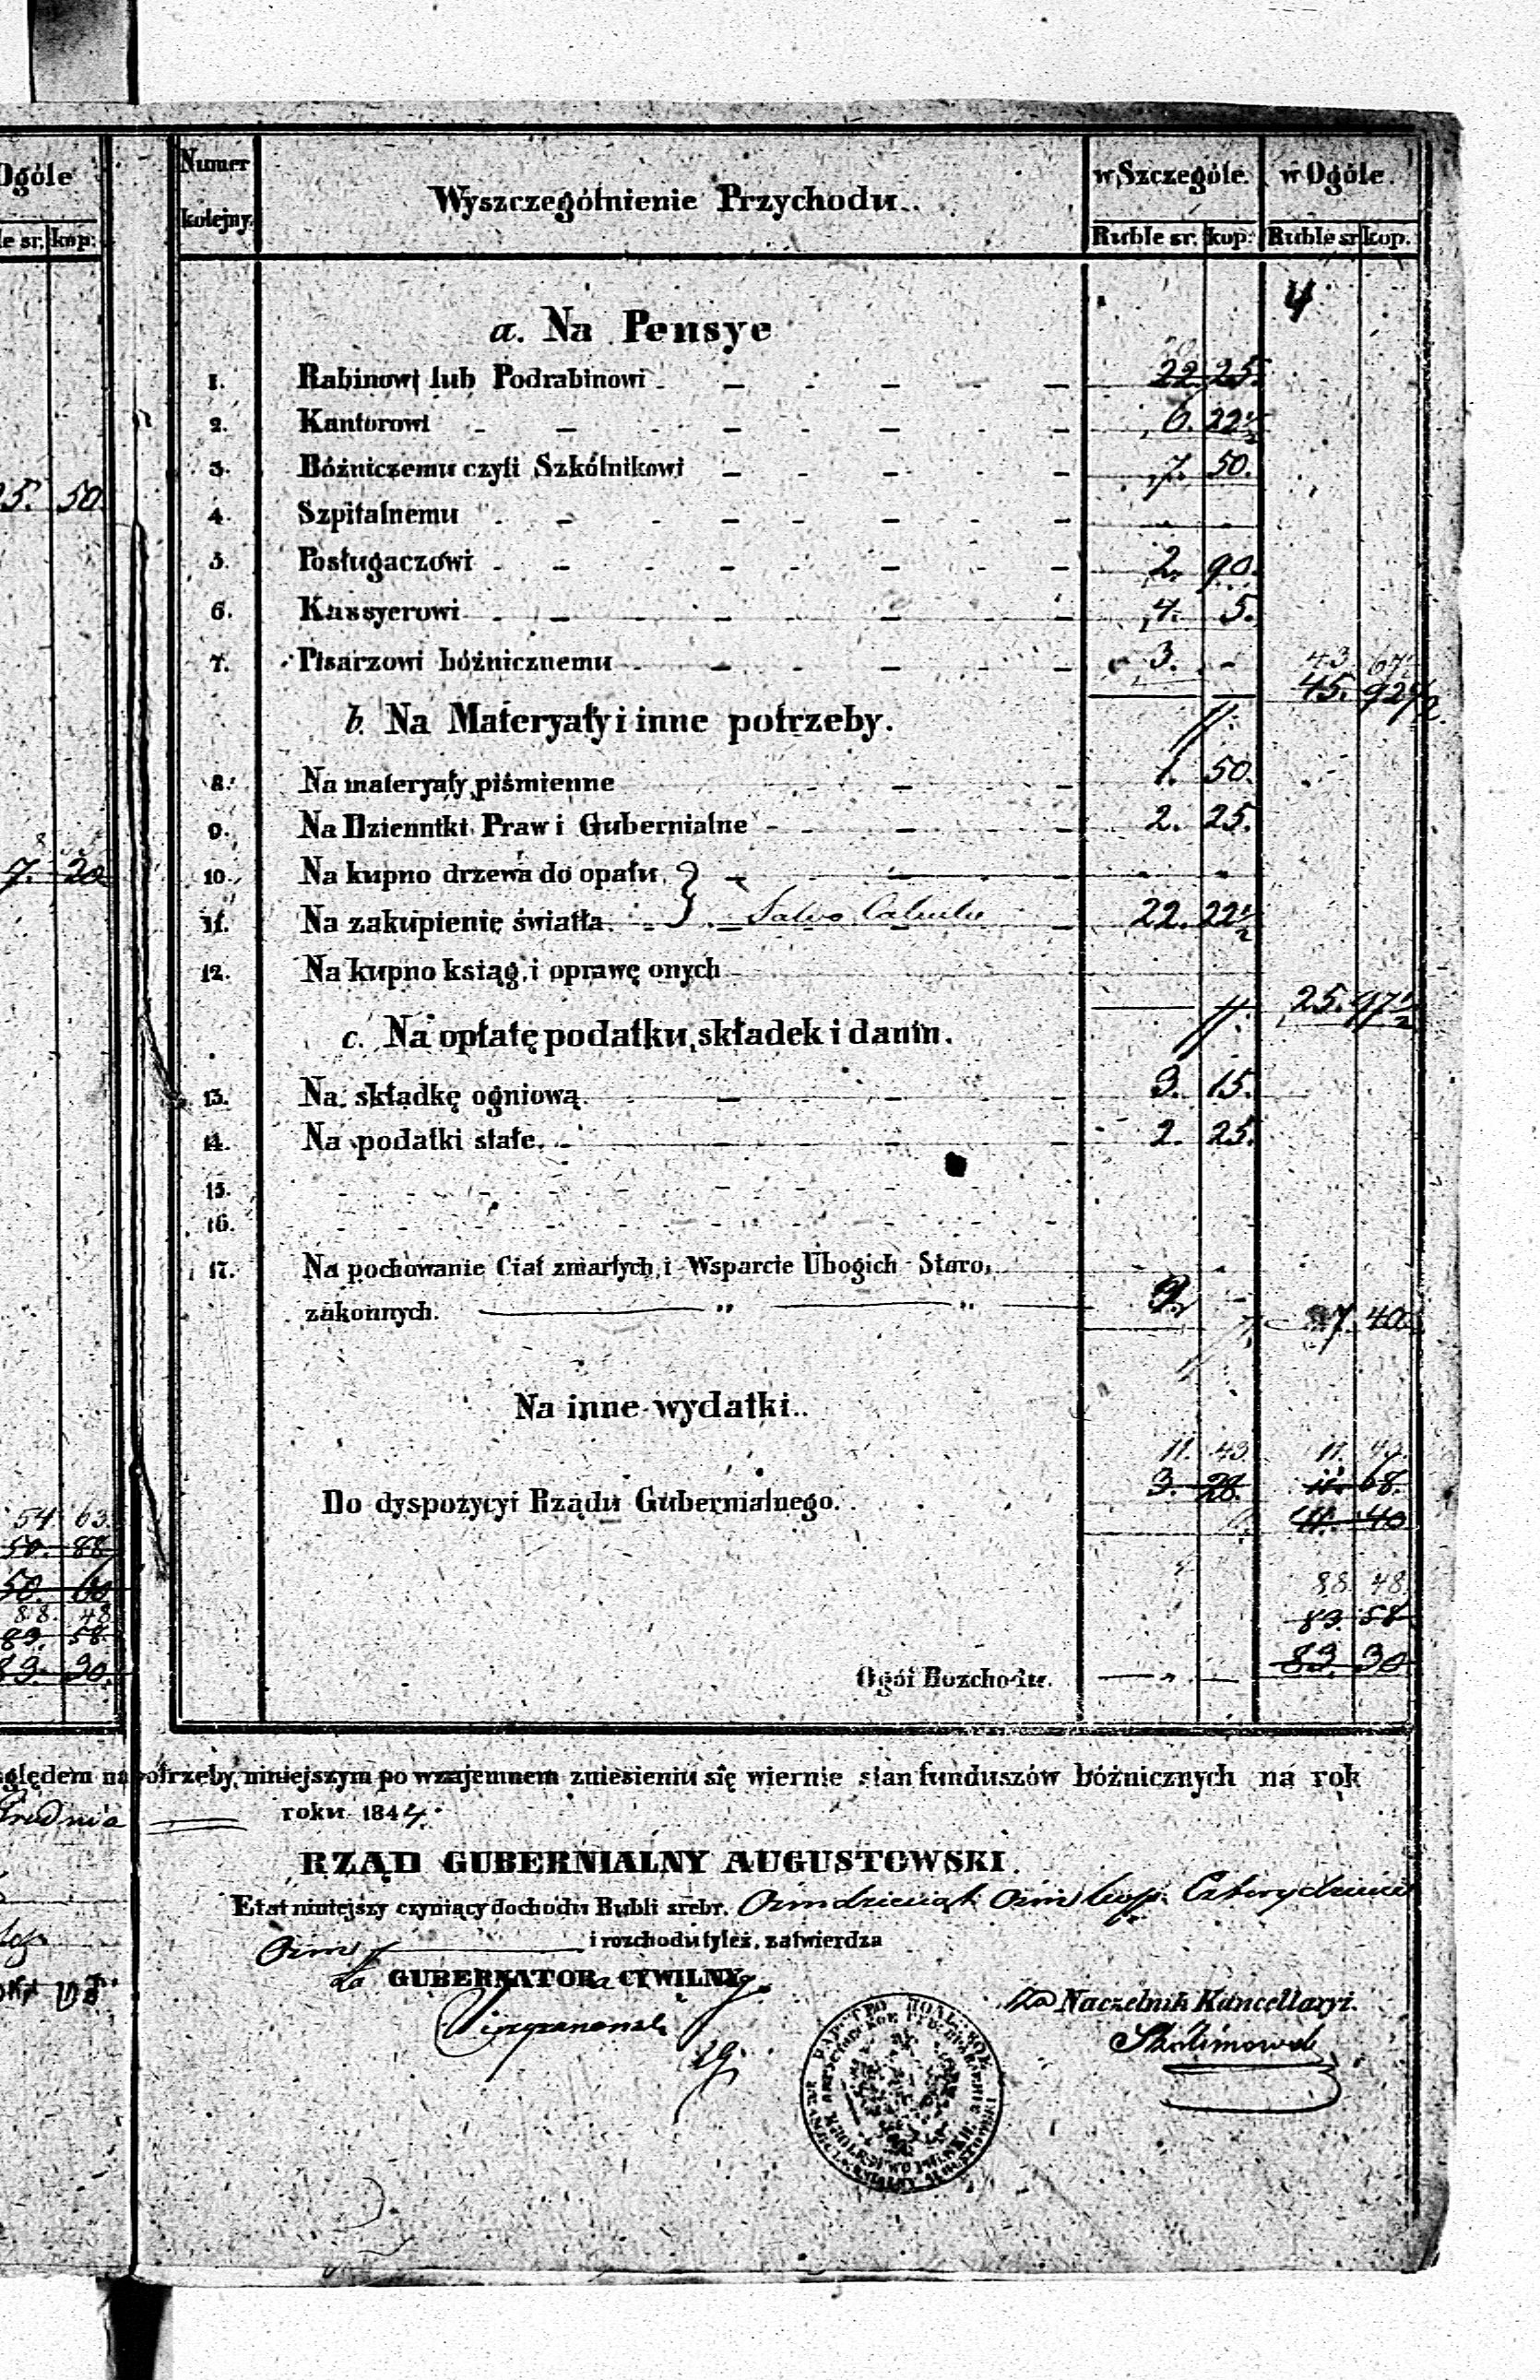 Ogóle
le sr. kop:
25. 50.
7. 20
54 63.
50. 88
50. 60
88. 48
83. 58.
83. 30.
Numer kolejny. Wyszczególnienie Przychodu. w Szczególe. w Ogóle.
Ruble sr. kop: Ruble sr. kop.
4
a. Na Pensye
1. Rabinowi lub Podrabinowi 22 25.
2. Kantorowi 6. 22½
3. Bóżniczemu czyli Szkólnikowi 7. 50.
4. Szpitalnemu - -
5. Posługaczowi 2. 90.
6. Kassyerowi 4. 5.
7. Pisarzowi bóżnicznemu 3. - 43 67½
45. 92½
b. Na Materyały i inne potrzeby.
8. Na materyały piśmienne 1. 50.
9. Na Dzienniki Praw i Gubernialne 2. 25.
10. Na kupno drzewa do opału - -
11. Na zakupienie światła Salvo Calculo 22. 22½
12. Na kupno ksiąg i oprawę onych
25. 97½
c. Na opłatę podatku, składek i danin.
13. Na składkę ogniową 3. 15.
14. Na podatki stałe. 2. 25.
15.
16.
17. Na pochowanie Ciał zmarłych i Wsparcie Ubogich Staro,
zakonnych. „ „ 7 40
Na inne wydatki.
11. 43 11. 43
Do dyspozycyi Rządu Gubernialnego. 3. 28. 11. 68.
11. 40
88 48
83. 58
Ogół Rozchodu. 83. 30
ględem na potrzeby, niniejszym po wzajemnem zniesieniu się wiernie stan funduszów bóżnicznych na rok
Grudnia roku 1844.
RZĄD GUBERNIALNY AUGUSTOWSKI.
Etat niniejszy czyniący dochodu Rubli srebr. Ośmdziesiąt Ośm kop. Czterydzieści
Ośm i rozchodu tyleż, zatwierdza
za GUBERNATORa CYWILNYg.
za Naczelnik Kancellaryi.